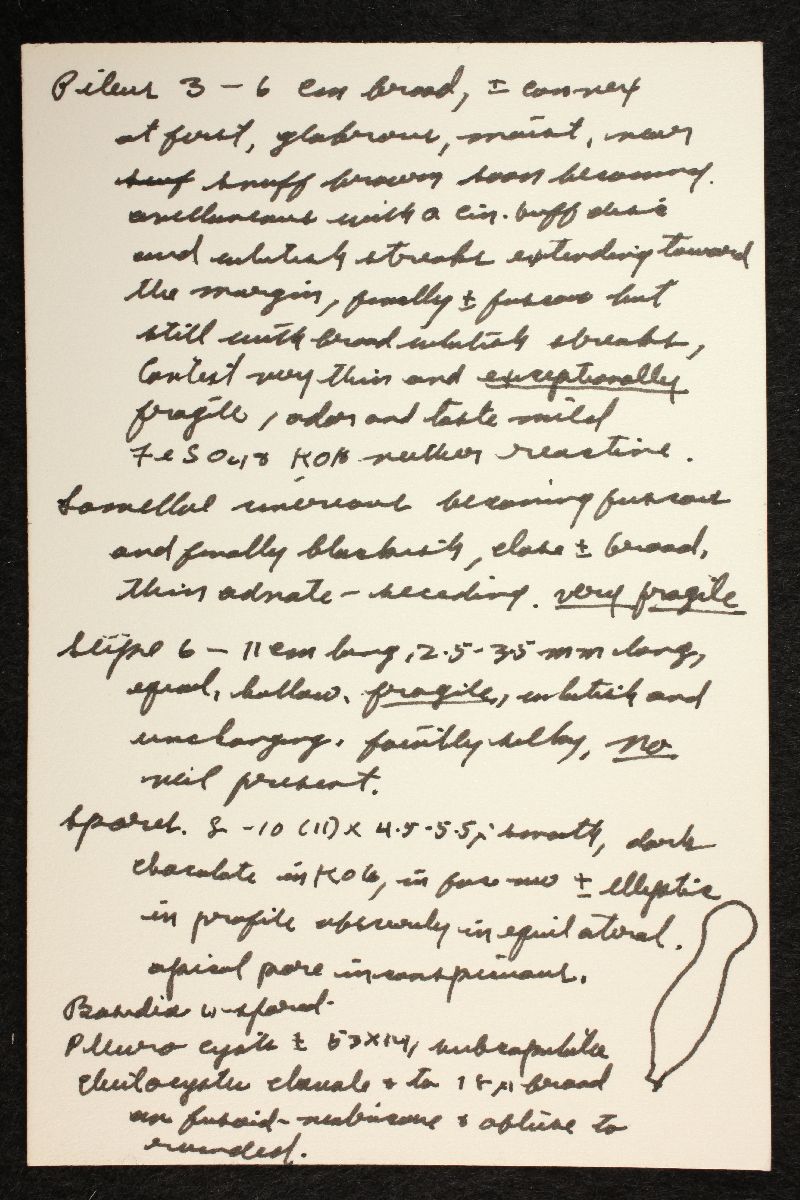 Pileus 3 - 6 cm broad, ± convex
at first, glabrous, moist, near
snuf snuff brown soon becoming
avellaneous with a cin. buff disc
and whitish streaks extending toward
the margin, finally ± fuscous but
still with broad whitish streaks,
Context very thin and exceptionally
fragile, odor and taste mild
FeSO4, & KOH neither reactive.
Lamellae cinereous becoming fuscous
and finally blackish, close ± broad,
thin adnate - seceding. very fragile
Stipe 6 - 11 cm long, 2.5-3.5 mm long,
equal, hollow, fragile, whitish and
unchanging. faintly silky, no
veil present.
Spores. 8 -10 (11) x 4.5-5.5µ smooth, dark
chocolate in KOH, in face view ± elliptic
in profile obscurely inequilateral.
apical pore inconspicuous.
Basidia 4-spored.
Pleuro cysts ± 53x14, subcapitate
cheilocystia clavate & to 18µ broad
or fusoid- & obtuse to
rounded.